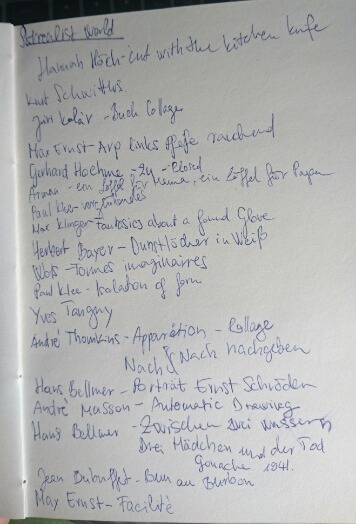 Surrealist World
Hannah Höch - cut with the kitchen knife
Kurt Schwittlos
Jiri Kolář - Buch Collage
Max Ernst - Arp links Pfeife rauchend
Gerhard Hoehme - Zu - Closed
Arman - ein Löffel für Mama, ein Löffel für Papa
Paul Klee -
Max Klinger - Fantasies about a found Glove
Herbert Bayer - Dunstlöcher in Weiß
Wols - Formes imaginaires
Paul Klee - Isolation of form
Yves Tanguy
André Thomkins - Apparétion - Rollage
Nach & Nach nachgeben
Hans Bellmer - Porträt Ernst Schröder
André Masson - Automatic Drawing
Hans Bellmer - Zwischen zwei Wassern
Drei Mädchen und der Tod
Gouache 1941.
Jean Dubuffet - au Burbon
Max Ernst - Facilité